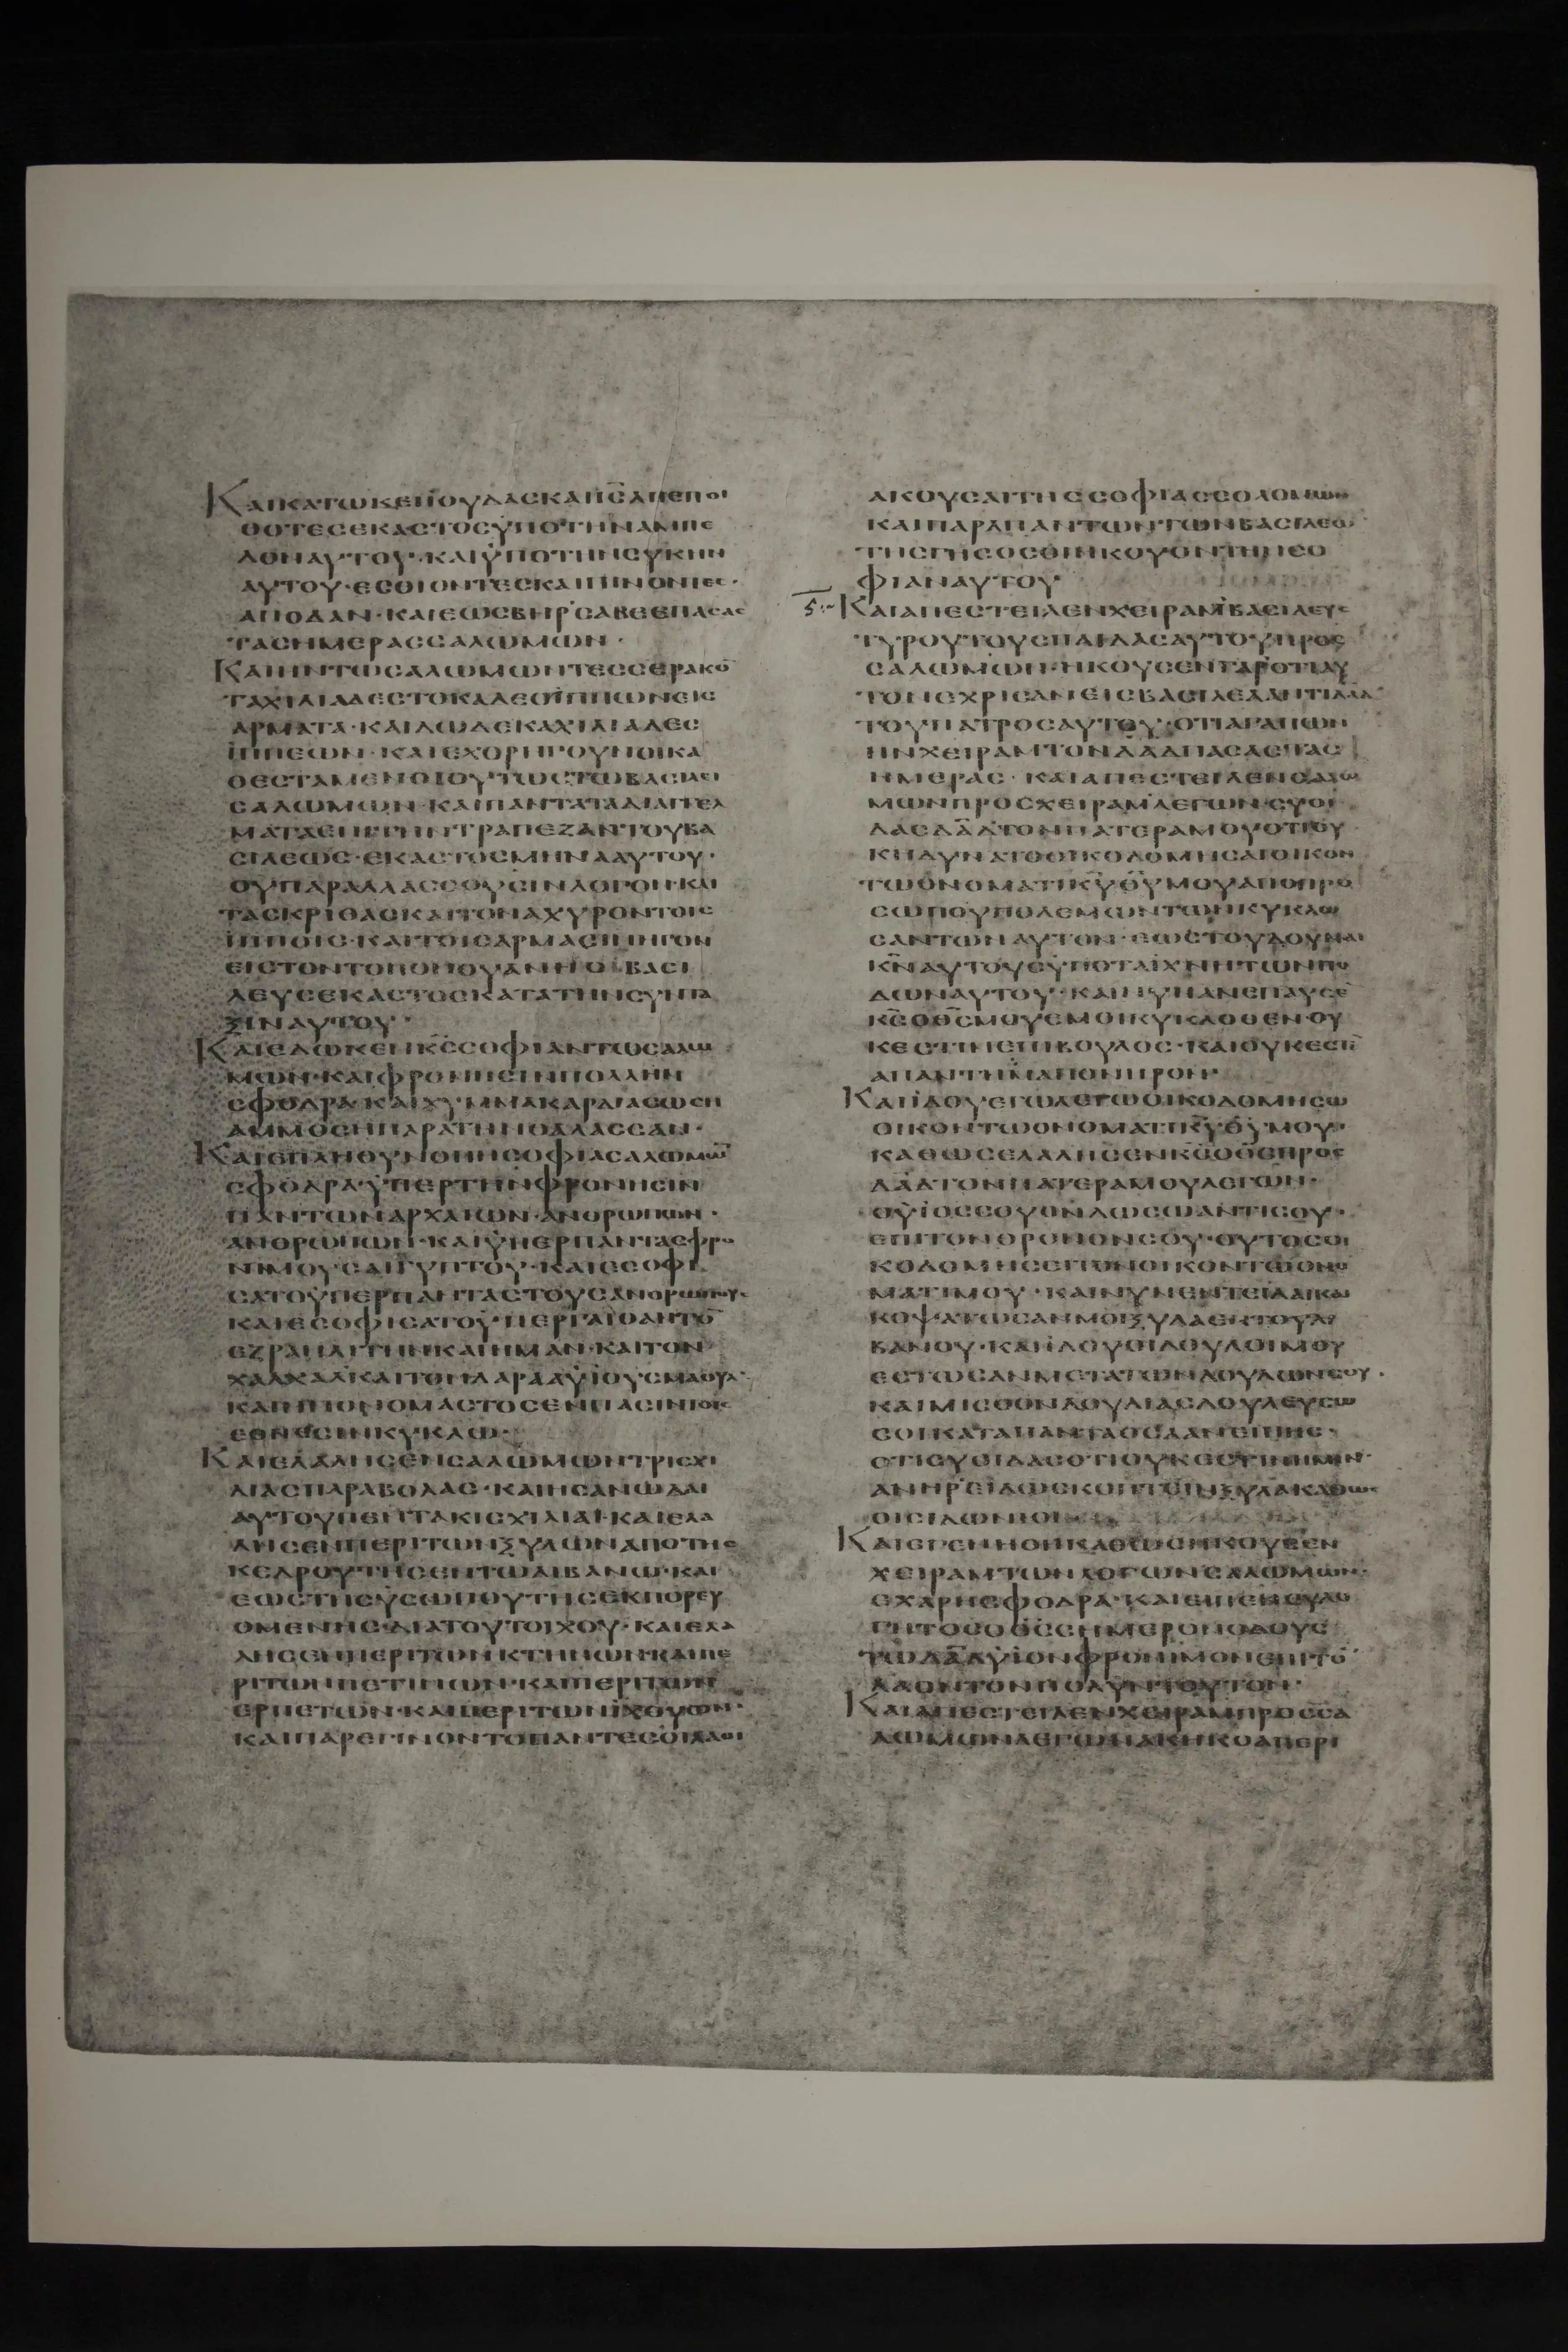 ΚΑΙΚΑΤΩΚΕΙΙΟΥΔΑΣΚΑΙΙΣ̅Λ̅ΠΕΠΟΙ
ΘΟΤΕΣΕΚΑΣΤΟΣΫΠΟΤΗΝΑΜΠΕ
ΛΟΝΑΥΤΟΥ·ΚΑΙΫΠΟΤΗΝΣΥΚΗΝ
ΑΥΤΟΥ·ΕΣΘΙΟΝΤΕΣΚΑΙΠΙΝΟΝΤΕΣ·
ΑΠΟΔΑΝ·ΚΑΙΕΩΣΒΗΡΣΑΒΕΕΠΑΣΑΣ
ΤΑΣΗΜΕΡΑΣΣΑΛΩΜΩΝ·
ΚΑΙΗΝΤΩΣΑΛΩΜΩΝΤΕΣΣΕΡΑΚΟ̅
ΤΑΧΙΛΙΑΔΕΣΤΟΚΑΔΕΟΪΠΠΩΝΕΙΣ
ΑΡΜΑΤΑ·ΚΑΙΔΩΔΕΚΑΧΙΛΙΑΔΕΣ
ΪΠΠΕΩΝ·ΚΑΙΕΧΟΡΗΓΟΥΝΟΙΚΑ
ΘΕΣΤΑΜΕΝΟΙΟΥΤΩΣΤΩΒΑΣΙΛΕΙ
ΣΑΛΩΜΩΝ·ΚΑΙΠΑΝΤΑΤΑΔΙΑΓΓΕΛ
ΜΑΤΑΕΠΙΤΗΝΤΡΑΠΕΖΑΝΤΟΥΒΑ
ΣΙΛΕΩΣ·ΕΚΑΣΤΟΣΜΗΝΑΑΥΤΟΥ·
ΟΥΠΑΡΑΛΛΑΣΣΟΥΣΙΝΛΟΓΟΝ·ΚΑΙ
ΤΑΣΚΡΙΘΑΣΚΑΙΤΟΝΑΧΥΡΟΝΤΟΙΣ
ΪΠΠΟΙΣ·ΚΑΙΤΟΙΣΑΡΜΑΣΙΝΗΓΟΝ
ΕΙΣΤΟΝΤΟΠΟΝΟΥΑΝΗΟΒΑΣΙ
ΛΕΥΣΕΚΑΣΤΟΣΚΑΤΑΤΗΝΣΥΝΤΑ
ΞΙΝΑΥΤΟΥ·
ΚΑΙΕΔΩΚΕΝΚ̅Σ̅ΣΟΦΙΑΝΤΩΣΑΛΩ
ΜΩΝ·ΚΑΙΦΡΟΝΗΣΙΝΠΟΛΛΗΝ
ΣΦΟΔΡΑΚΑΙΧΥΜΑΚΑΡΔΙΑΣΩΣΗ
ΑΜΜΟΣΗΠΑΡΑΤΗΝΘΑΛΑΣΣΑΝ·
ΚΑΙΕΠΛΗΘΥΝΘΗΗΣΟΦΙΑΣΑΛΩΜΩ̅
ΣΦΟΔΡΑ·ΫΠΕΡΤΗΝΦΡΟΝΗΣΙΝ
ΠΑΝΤΩΝΑΡΧΑΙΩΝ·ΑΝΘΡΩΠΩΝ·
ΑΝΘΡΩΠΩΝ·ΚΑΙΫΠΕΡΠΑΝΤΑΣΦΡΟ
ΝΙΜΟΥΣΑΙΓΥΠΤΟΥ·ΚΑΙΕΣΟΦΙ
ΣΑΤΟΫΠΕΡΠΑΝΤΑΣΤΟΥΣΑΝΘΡΩΠΟΥΣ·
ΚΑΙΕΣΟΦΙΣΑΤΟΫΠΕΡΓΑΙΘΑΝΤΟ̅
ΕΖΡΑΗΛΙΤΗΝΚΑΙΗΜΑΝ·ΚΑΙΤΟΝ
ΧΑΛΚΑΔΚΑΙΤΟΝΔΑΡΔΑΫΪΟΥΣΜΑΟΥΛ·
ΚΑΙΗΝΟΝΟΜΑΣΤΟΣΕΝΠΑΣΙΝΤΟΙΣ
ΕΘΝΕΣΙΝΚΥΚΛΩ·
ΚΑΙΕΛΑΛΗΣΕΝΣΑΛΩΜΩΝΤΡΙΣΧΙ
ΛΙΑΣΠΑΡΑΒΟΛΑΣ·ΚΑΙΗΣΑΝΩΔΑΙ
ΑΥΤΟΥΠΕΝΤΑΚΙΣΧΙΛΙΑΙ·ΚΑΙΕΛΑ
ΛΗΣΕΝΠΕΡΙΤΩΝΞΥΛΩΝΑΠΟΤΗΣ
ΚΕΔΡΟΥΤΗΣΕΝΤΩΛΙΒΑΝΩ·ΚΑΙ
ΕΩΣΤΗΣΫΣΩΠΟΥΤΗΣΕΚΠΟΡΕΥ
ΟΜΕΝΗΣΔΙΑΤΟΥΤΟΙΧΟΥ·ΚΑΙΕΛΑ
ΛΗΣΕΝΠΕΡΙΤΩΝΚΤΗΝΩΝ·ΚΑΙΠΕ
ΡΙΤΩΝΠΕΤΙΝΩΝ·ΚΑΙΠΕΡΙΤΩΝ
ΕΡΠΕΤΩΝ·ΚΑΙΠΕΡΙΤΩΝΪΧΘΥΩΝ·
ΚΑΙΠΑΡΕΓΙΝΟΝΤΟΠΑΝΤΕΣΟΙΛΑΟΙ
ΑΚΟΥΣΑΙΤΗΣΣΟΦΙΑΣΣΟΛΟΜΩΝ
ΚΑΙΠΑΡΑΠΑΝΤΩΝΤΩΝΒΑΣΙΛΕΩ
ΤΗΣΓΗΣΟΣΟΙΗΚΟΥΟΝΤΗΣΣΟ
ΦΙΑΝΑΥΤΟΥ
Ϛ ΚΑΙΑΠΕΣΤΕΙΛΕΝΧΕΙΡΑΜΒΑΣΙΛΕΥΣ
ΤΥΡΟΥΤΟΥΣΠΑΙΔΑΣΑΥΤΟΥΠΡΟΣ
ΣΑΛΩΜΩΝ·ΗΚΟΥΣΕΝΓΑΡΟΤΙΑΥ
ΤΟΝΕΧΡΙΣΑΝΕΙΣΒΑΣΙΛΕΑΑΝΤΙΔΑΔ
ΤΟΥΠΑΤΡΟΣΑΥΤΟΥ·ΟΤΙΑΓΑΠΩΝ
ΗΝΧΕΙΡΑΜΤΟΝΔΑΔΠΑΣΑΣΤΑΣ
ΗΜΕΡΑΣ·ΚΑΙΑΠΕΣΤΕΙΛΕΝΣΑΛΩ
ΜΩΝΠΡΟΣΧΕΙΡΑΜΛΕΓΩΝ·ΣΥΟΙ
ΔΑΣΔΑ̅Δ̅ΤΟΝΠΑΤΕΡΑΜΟΥΟΤΙΟΥ
ΚΗΔΥΝΑΤΟΟΙΚΟΔΟΜΗΣΑΙΟΙΚΟΝ
ΤΩΟΝΟΜΑΤΙΚ̅Υ̅Θ̅Υ̅ΜΟΥΑΠΟΠΡΟ
ΣΩΠΟΥΠΟΛΕΜΩΝΤΩΝΚΥΚΛΩ
ΣΑΝΤΩΝΑΥΤΟΝ·ΕΩΣΤΟΥΔΟΥΝΑΙ
Κ̅Ν̅ΑΥΤΟΥΣΫΠΟΤΑΪΧΝΗΤΩΝΠΟ
ΔΩΝΑΥΤΟΥ·ΚΑΙΝΥΝΑΝΕΠΑΥΣΕ
Κ̅Σ̅ΟΘ̅Σ̅ΜΟΥΕΜΟΙΚΥΚΛΟΘΕΝ·ΟΥ
ΚΕΣΤΙΝΕΠΙΒΟΥΛΟΣ·ΚΑΙΟΥΚΕΣΤΙ̅
ΑΠΑΝΤΗΜΑΠΟΝΗΡΟΝ·
ΚΑΙΪΔΟΥΕΓΩΛΕΓΩΟΙΚΟΔΟΜΗΣΩ
ΟΙΚΟΝΤΩΟΝΟΜΑΤΙΚ̅Υ̅Θ̅Υ̅ΜΟΥ·
ΚΑΘΩΣΕΛΑΛΗΣΕΝΚ̅Σ̅ΟΘ̅Σ̅ΠΡΟΣ
ΔΑ̅Δ̅ΤΟΝΠΑΤΕΡΑΜΟΥΛΕΓΩΝ·
ΟΫΪΟΣΣΟΥΟΝΔΩΣΩΑΝΤΙΣΟΥ·
ΕΠΙΤΟΝΘΡΟΝΟΝΣΟΥ·ΟΥΤΟΣΟΙ
ΚΟΔΟΜΗΣΕΙΤΟΝΟΙΚΟΝΤΩΟΝΟ
ΜΑΤΙΜΟΥ·ΚΑΙΝΥΝΕΝΤΕΙΛΑΙΚΑΙ
ΚΟΨΑΤΩΣΑΝΜΟΙΞΥΛΑΕΚΤΟΥΛΙ
ΒΑΝΟΥ·ΚΑΙΪΔΟΥΟΙΔΟΥΛΟΙΜΟΥ
ΕΣΤΩΣΑΝΜΕΤΑΤΩΝΔΟΥΛΩΝΣΟΥ·
ΚΑΙΜΙΣΘΟΝΔΟΥΛΙΑΣΔΟΥΛΕΥΣΩ
ΣΟΙΚΑΤΑΠΑΝΤΑΟΣΑΑΝΕΙΠΗΣ·
ΟΤΙΣΥΟΙΔΑΣΟΤΙΟΥΚΕΣΤΙΝΗΜΙΝ·
ΑΝΗΡΕΙΔΩΣΚΟΠΤΕΙΝΞΥΛΑΚΑΘΩΣ
ΟΙΣΙΔΩΝΙΟΙ
ΚΑΙΕΓΕΝΗΘΗΚΑΘΩΣΗΚΟΥΣΕΝ
ΧΕΙΡΑΜΤΩΝΛΟΓΩΝΣΑΛΩΜΩΝ·
ΕΧΑΡΗΣΦΟΔΡΑ·ΚΑΙΕΙΠΕΝΕΥΛΟ
ΓΗΤΟΣΟΘ̅Σ̅ΣΗΜΕΡΟΝΟΔΟΥΣ
ΤΩΔΑ̅Δ̅ΫΪΟΝΦΡΟΝΙΜΟΝΕΠΙΤΟ̅
ΛΑΟΝΤΟΝΠΟΛΥΝΤΟΥΤΟΝ·
ΚΑΙΑΠΕΣΤΕΙΛΕΝΧΕΙΡΑΜΠΡΟΣΣΑ
ΛΩΜΩΝΛΕΓΩΝΑΚΗΚΟΑΠΕΡΙ